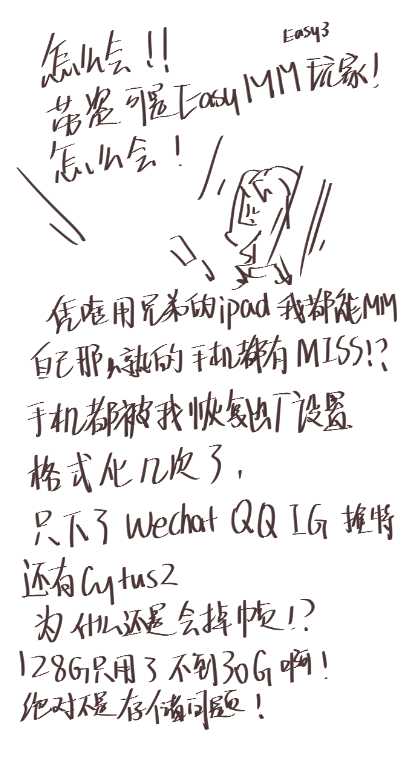 怎么会!!
Easy3
芾盗可是EasyMM玩家!
怎么会!
凭啥用兄弟的ipad我都能MM
自己那么熟的手机都有MISS!?
手机都被我恢复出厂设置
格式化几次了,
只下了Wechat QQ IG 推特
还有Cytus2
为什么还是会掉帧!?
128G只用了不到30G啊!
绝对不是存储问题!